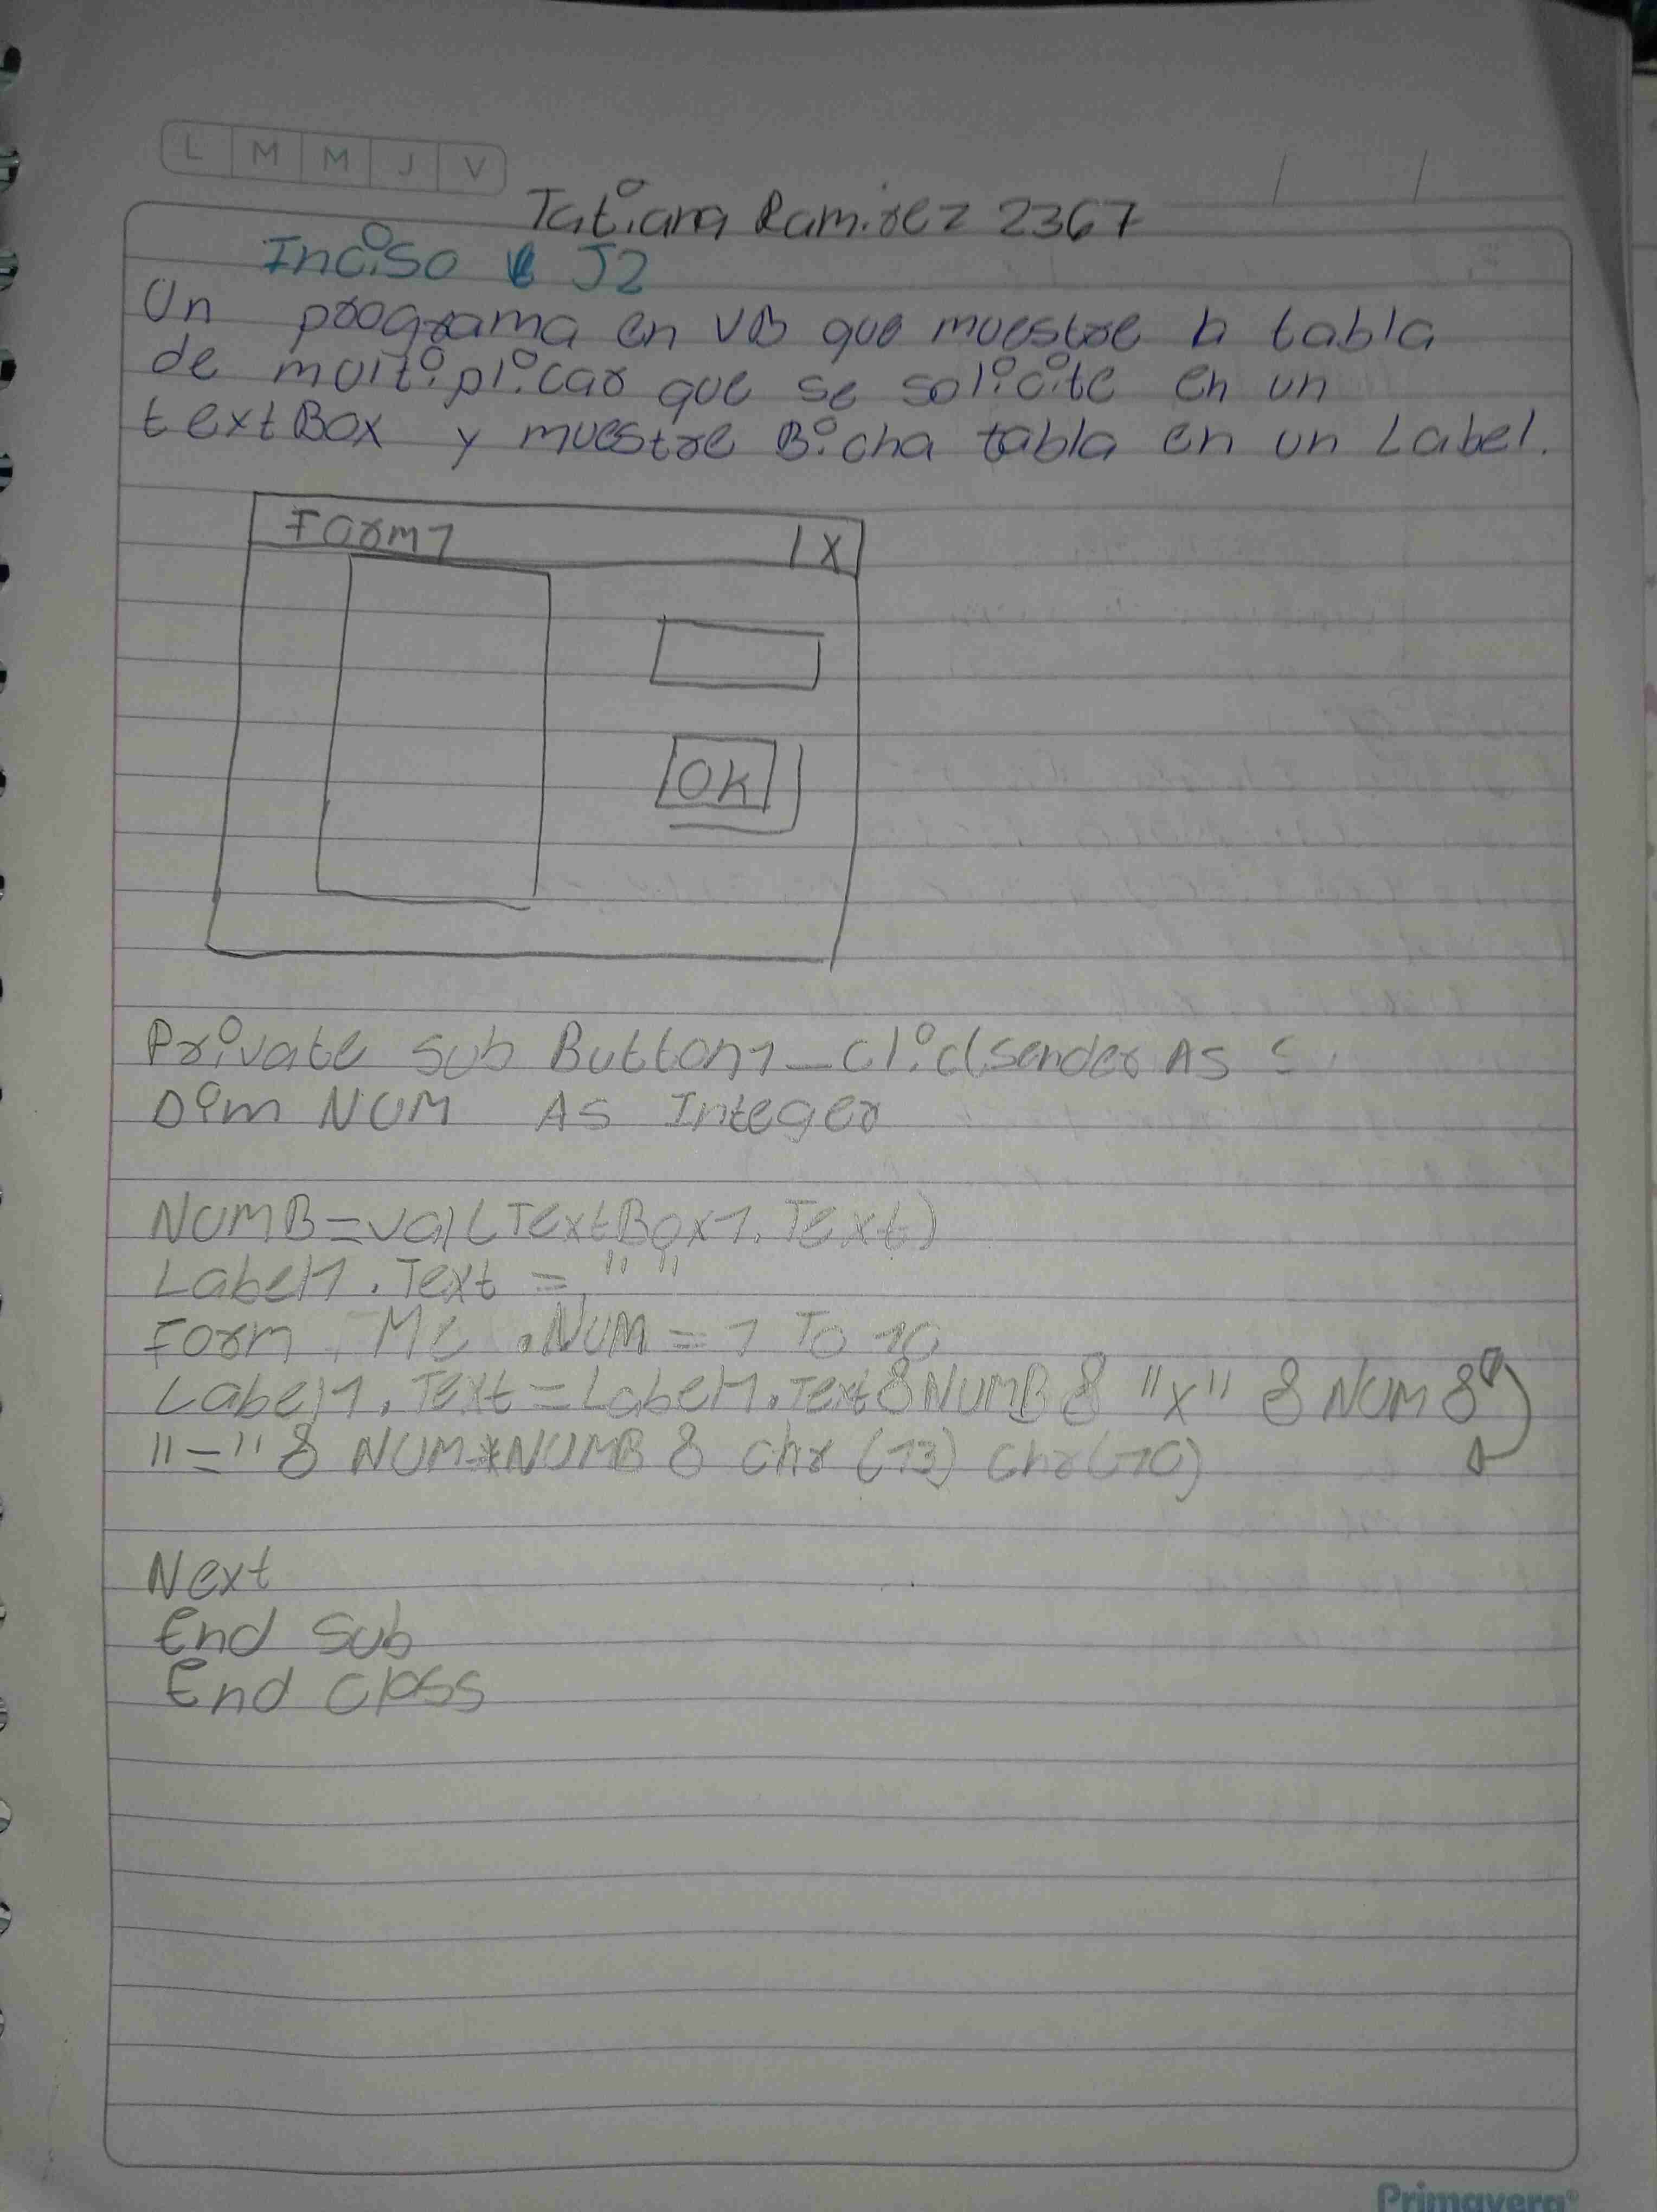 L M M J V
Tatiana Ramirez 2367
Inciso J2
Un programa en VB que muestre la tabla
de multiplicar que se solicite en un
textBox y muestre Bicha tabla en un Label.
Form1 X
OK
Private Sub Button1_Clic(sender As
Dim NUM As Integer
NUMB=val(TextBox1.Text)
Label1.Text = " "
Form Me.NUM = 1 To 10
Label1.Text=Label1.Text & NUMB & "x" & NUM &
"=" & NUM*NUMB & Chr (13) Chr(10)
Next
End Sub
End Class
Primavera